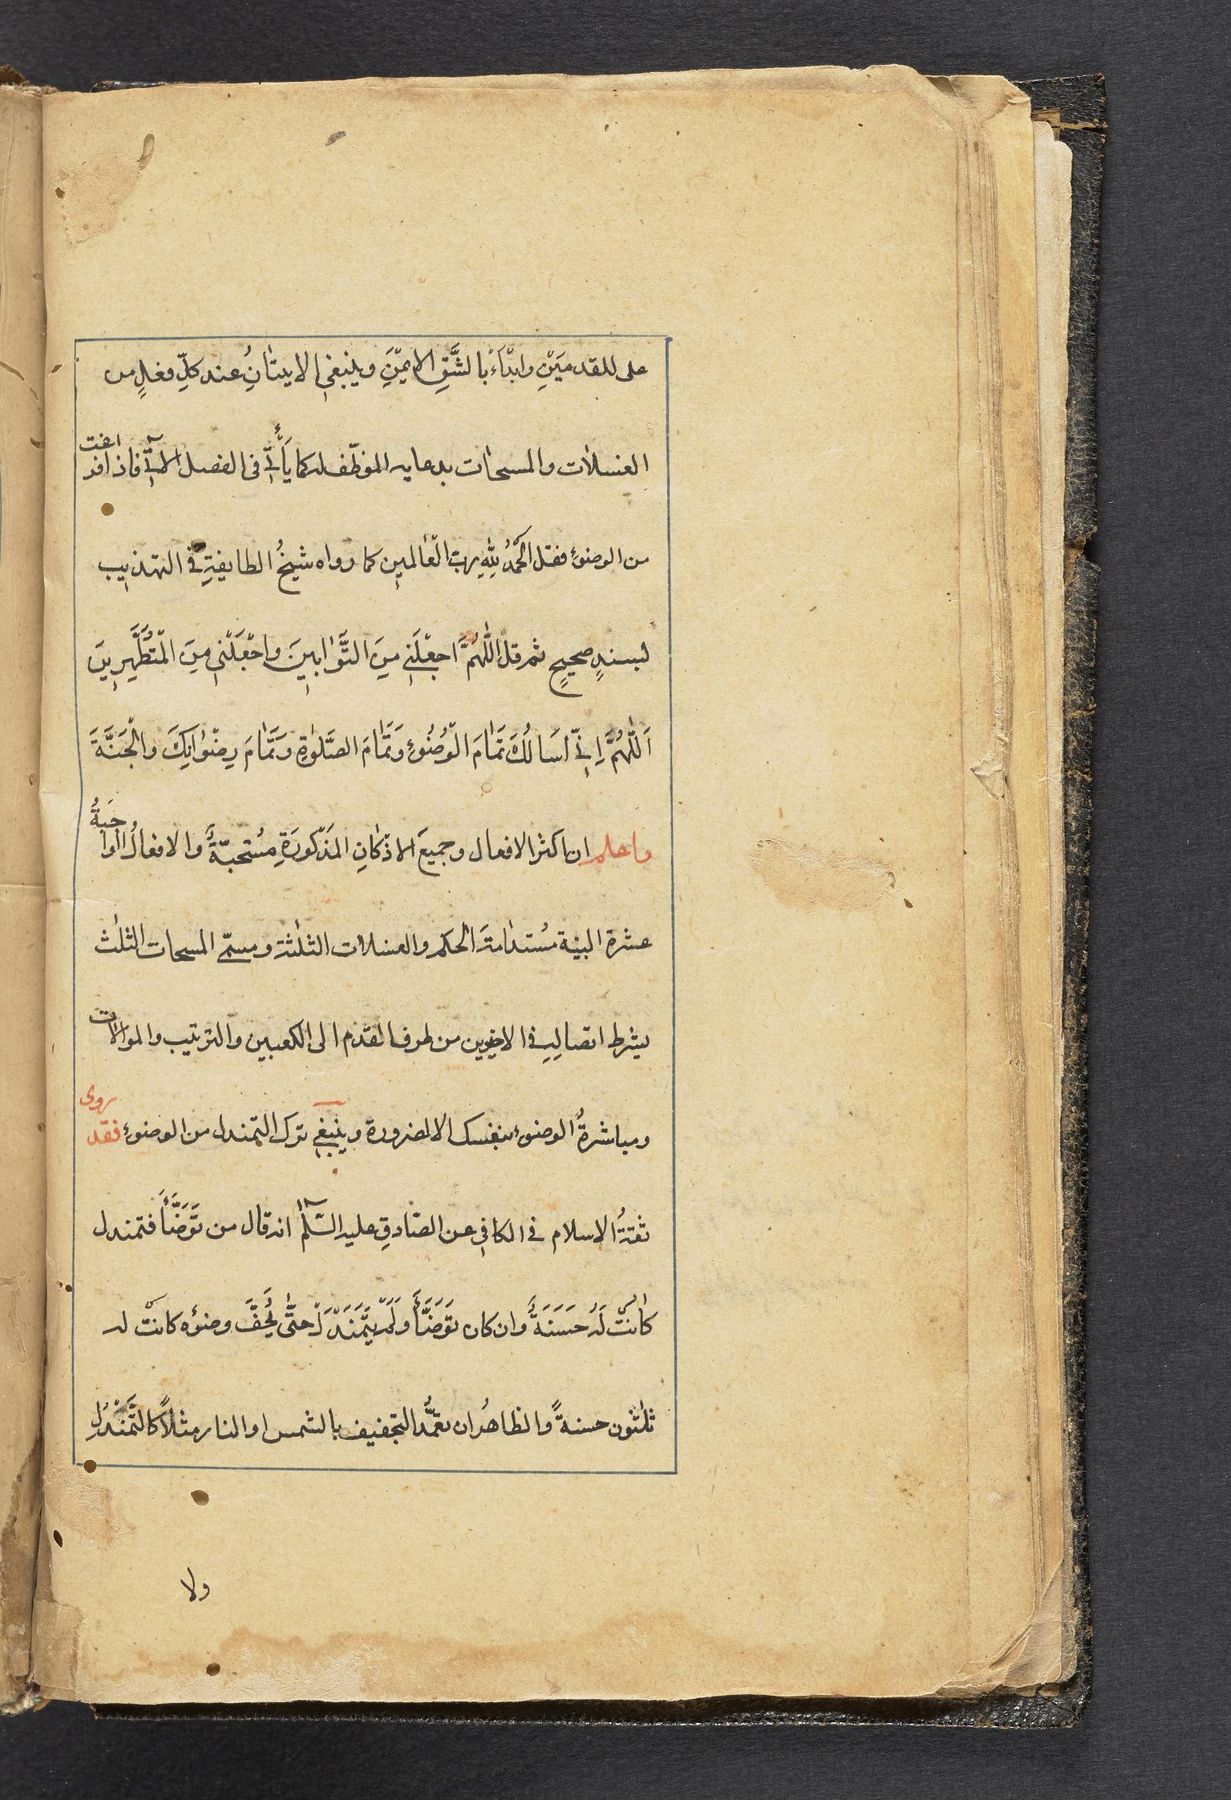 على للقدمَيَنِ وابدَاءُ بالشَّقِ الايمَنِ وينبغى الايتٰانُ عند كلِّ فعلٍ من
الغسلٰات والمسحٰات بدعايه الموظّف له كما يَأتى فى الفصل الاٰتى فاذا فرغت
من الوضوء فقل الحَمدُ لِلّٰهِ ربّ العٰالمين كما رواه شيخُ الطايفةِ فى التهذيب
بسندٍ صحيحٍ ثم قل اللّٰهُمَّ اجعَلْنى مِنَ التَّوّٰابينَ واجْعَلْنى مِنَ المُتَطَهِّرينَ
اَللّٰهُمَّ اِنّى اَسَالُكَ تَمٰامَ الوُضُوءِ وَتَمٰامَ الصَّلوٰةِ وَتَمٰامَ رِضْوٰانِكَ والْجَنَّةَ
واعلم ان اكثر الافعال وجميعَ الاذكانِ المَذكورَةِ مُستحبّةٌ والافعالُ الواجَبةُ
عشرة النية مُستدٰامةَ الحكم والغسلات الثلٰثة ومسمّى المسحات الثلٰث
بشرط اتصالِ الاخيرين من طرف القدم الى الكعبين والترتيب والموالات
ومباشرةُ الوضوء بنفسك الا لضرورة وينبغى ترك التمندل من الوضوء فقد روى
ثقةُ الاسلام فى الكافى عن الصّادقِ عليه السّلٰم انه قال من تَوَضَّأَ فتمندل
كٰانَتْ لَهُ حَسَنَةٌ وان كان تَوَضَّأَ وَلَمْ يَتَمَنْدَلْ حتّٰى يَجُفَّ وضوئه كانت له
ثلٰثون حسنةً والظاهرُ ان تعمُّد التجفيف بالشمس او النار مثلاً كالتَّمَنْدُلِ
ولا